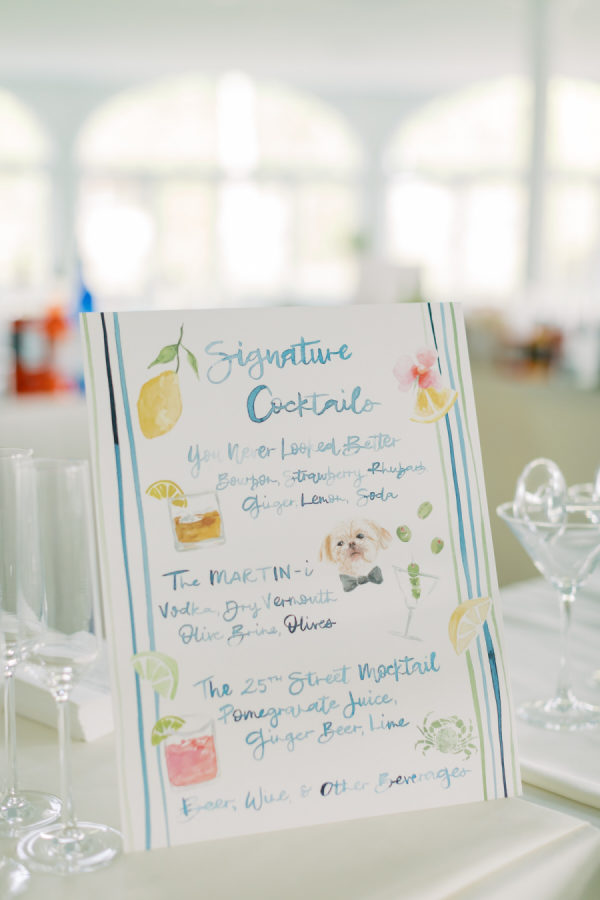 Signature
Cocktails
You Never Looked Better
Bourbon, Strawberry Rhubarb
Ginger, Lemon, Soda
The MARTIN-i
Vodka, Dry Vermouth
Olive Brine, Olives
The 25TH Street Mocktail
Pomegranate Juice,
Ginger Beer, Lime
Beer, Wine, & Other Breverages